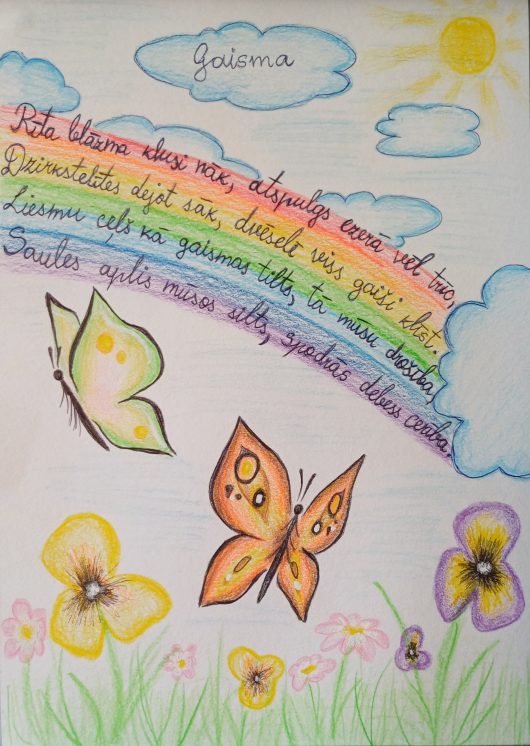 Gaisma
Rīta blāzma klusi nāk, atspulgs ezerā vēl trīs,
Dzirkstelītes dejot sāk, dvēselē viss gaiši klīst.
Liesmu ceļš kā gaismas tilts, tā mūsu drošība,
Saules aplis mūsos silts, spodrās debess cerība.